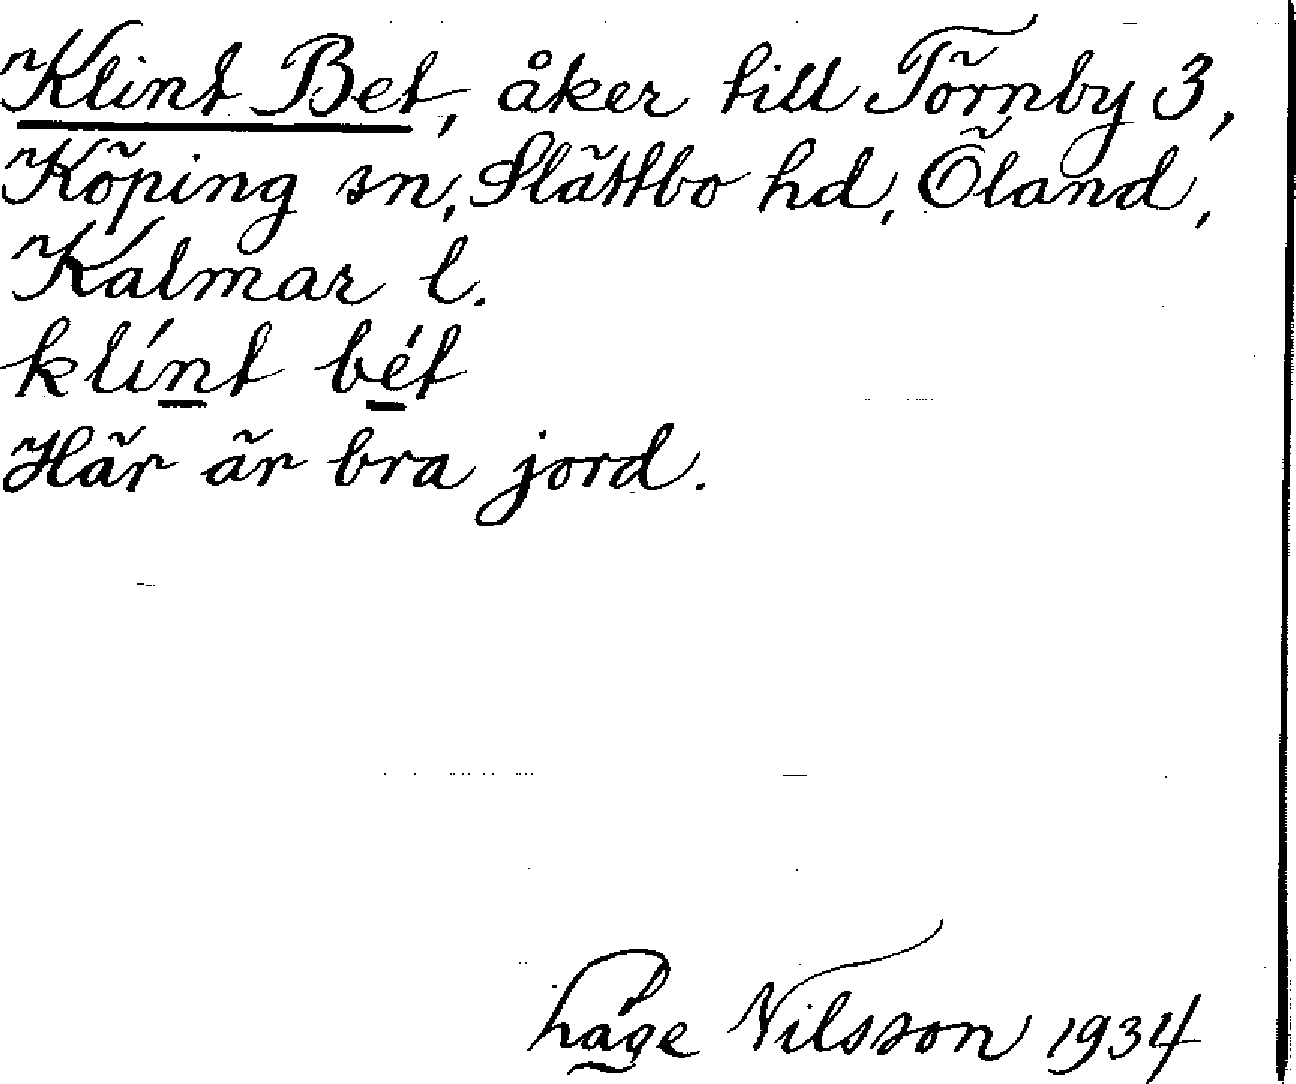 Klint Bet, åker till Törnby 3,
Köping sn, Slättbo hd, Öland,
Kalmar l.
klínt bét
Här är bra jord.
Låge Nilsson 1934